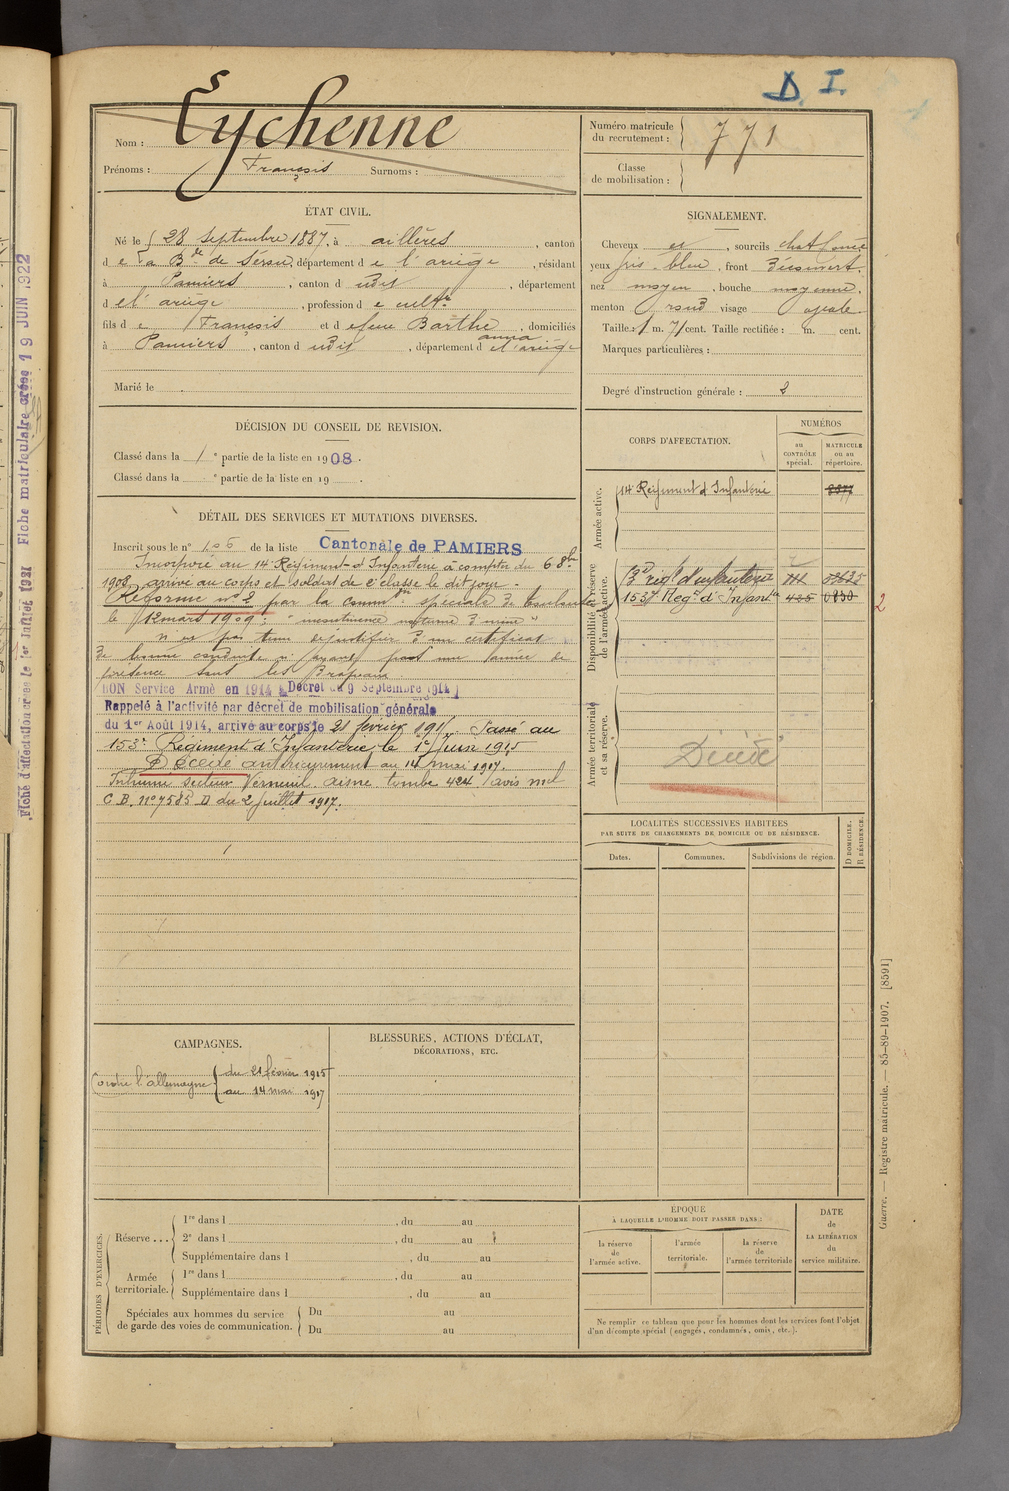 D. I.
Nom : Eychenne
Prénoms : François Surnoms :
Numéro matricule du recrutement : 771
Classe de mobilisation :
ÉTAT CIVIL.
Né le 28 septembre 1887, à aillères, canton
d e la Bde de Sérou, département d e l'ariège, résidant
à Pamiers, canton d udit, département
d el'ariège, profession d e cultr
fils d e François et d efeue Barthe anna, domiciliés
à Pamiers, canton d udit, département d el'ariège
Marié le
SIGNALEMENT.
Cheveux et, sourcils chat foncé
yeux gris-bleu, front découvert.
nez moyen, bouche moyenne.
menton rond visage ovale.
Taille : 1 m. 71 cent. Taille rectifiée : m. cent.
Marques particulières :
Degré d'instruction générale : 2
DÉCISION DU CONSEIL DE REVISION.
Classé dans la 1e partie de la liste en 1908.
Classé dans la e partie de la liste en 19 .
DÉTAIL DES SERVICES ET MUTATIONS DIVERSES.
Inscrit sous le n° 106 de la liste Cantonale de PAMIERS
Incorporé au 14 Régiment d'Infanterie à compter du 6 8bre
1908, arrivé au corps et soldat de 2e classe le dit jour.
Réformé n° 2 par la common spéciale de Toulouse
le 12 mars 1909 : "incontinence nocturne d'urine"
n'est pas tenu de justifier d'un certificat
de bonne conduite n'ayant pas une année de
présence sous les Drapeaux
BON Service Armé en 1914 Décret du 9 Septembre 1914
Rappelé à l'activité par décret de mobilisation générale
du 1er Août 1914, arrivé au corps le 21 février 1915. Passé au
153e Régiment d'Infanterie le 1er Juin 1915
Décédé antérieurement au 14 mai 1917.
Inhumé secteur Verneuil aisne tombe 424 (avis mel
C.B. N° 7585 D du 2 Juillet 1917.
CORPS D'AFFECTATION.
NUMÉROS
au CONTRÔLE spécial.
MATRICULE ou au répertoire.
Armée active.
14 Régiment d'Infanterie 8877
Disponibilité et réserve de l'armée active.
régt d'infanterie
153e Regt d'Infantie 425 0830
2
Armée territoriale et sa réserve.
Décédé
LOCALITÉS SUCCESSIVES HABITÉES
PAR SUITE DE CHANGEMENTS DE DOMICILE OU DE RÉSIDENCE.
Dates. Communes. Subdivisions de région. D DOMICILE. R RÉSIDENCE.
CAMPAGNES.
Contre l'allemagne du 21 février 1915
au 14 mai 1917
BLESSURES, ACTIONS D'ÉCLAT,
DÉCORATIONS, ETC.
PÉRIODES D'EXERCICES.
Réserve ... 1re dans l , du au
2e dans l , du au
Supplémentaire dans l , du au
Armée territoriale. 1re dans l , du au
Supplémentaire dans l , du au
Spéciales aux hommes du service de garde des voies de communication. Du au
Du au
ÉPOQUE
À LAQUELLE L'HOMME DOIT PASSER DANS :
la réserve de l'armée active.
l'armée territoriale.
la réserve de l'armée territoriale
DATE de LA LIBÉRATION du service militaire.
Ne remplir ce tableau que pour les hommes dont les services font l'objet
d'un décompte spécial (engagés, condamnés, omis, etc.).
Guerre. — Registre matricule. — 85-89-1907. [8591]
Fiche d'affectation créée le 1er Juillet 1921 Fiche matriculaire créée 19 JUIN 1922